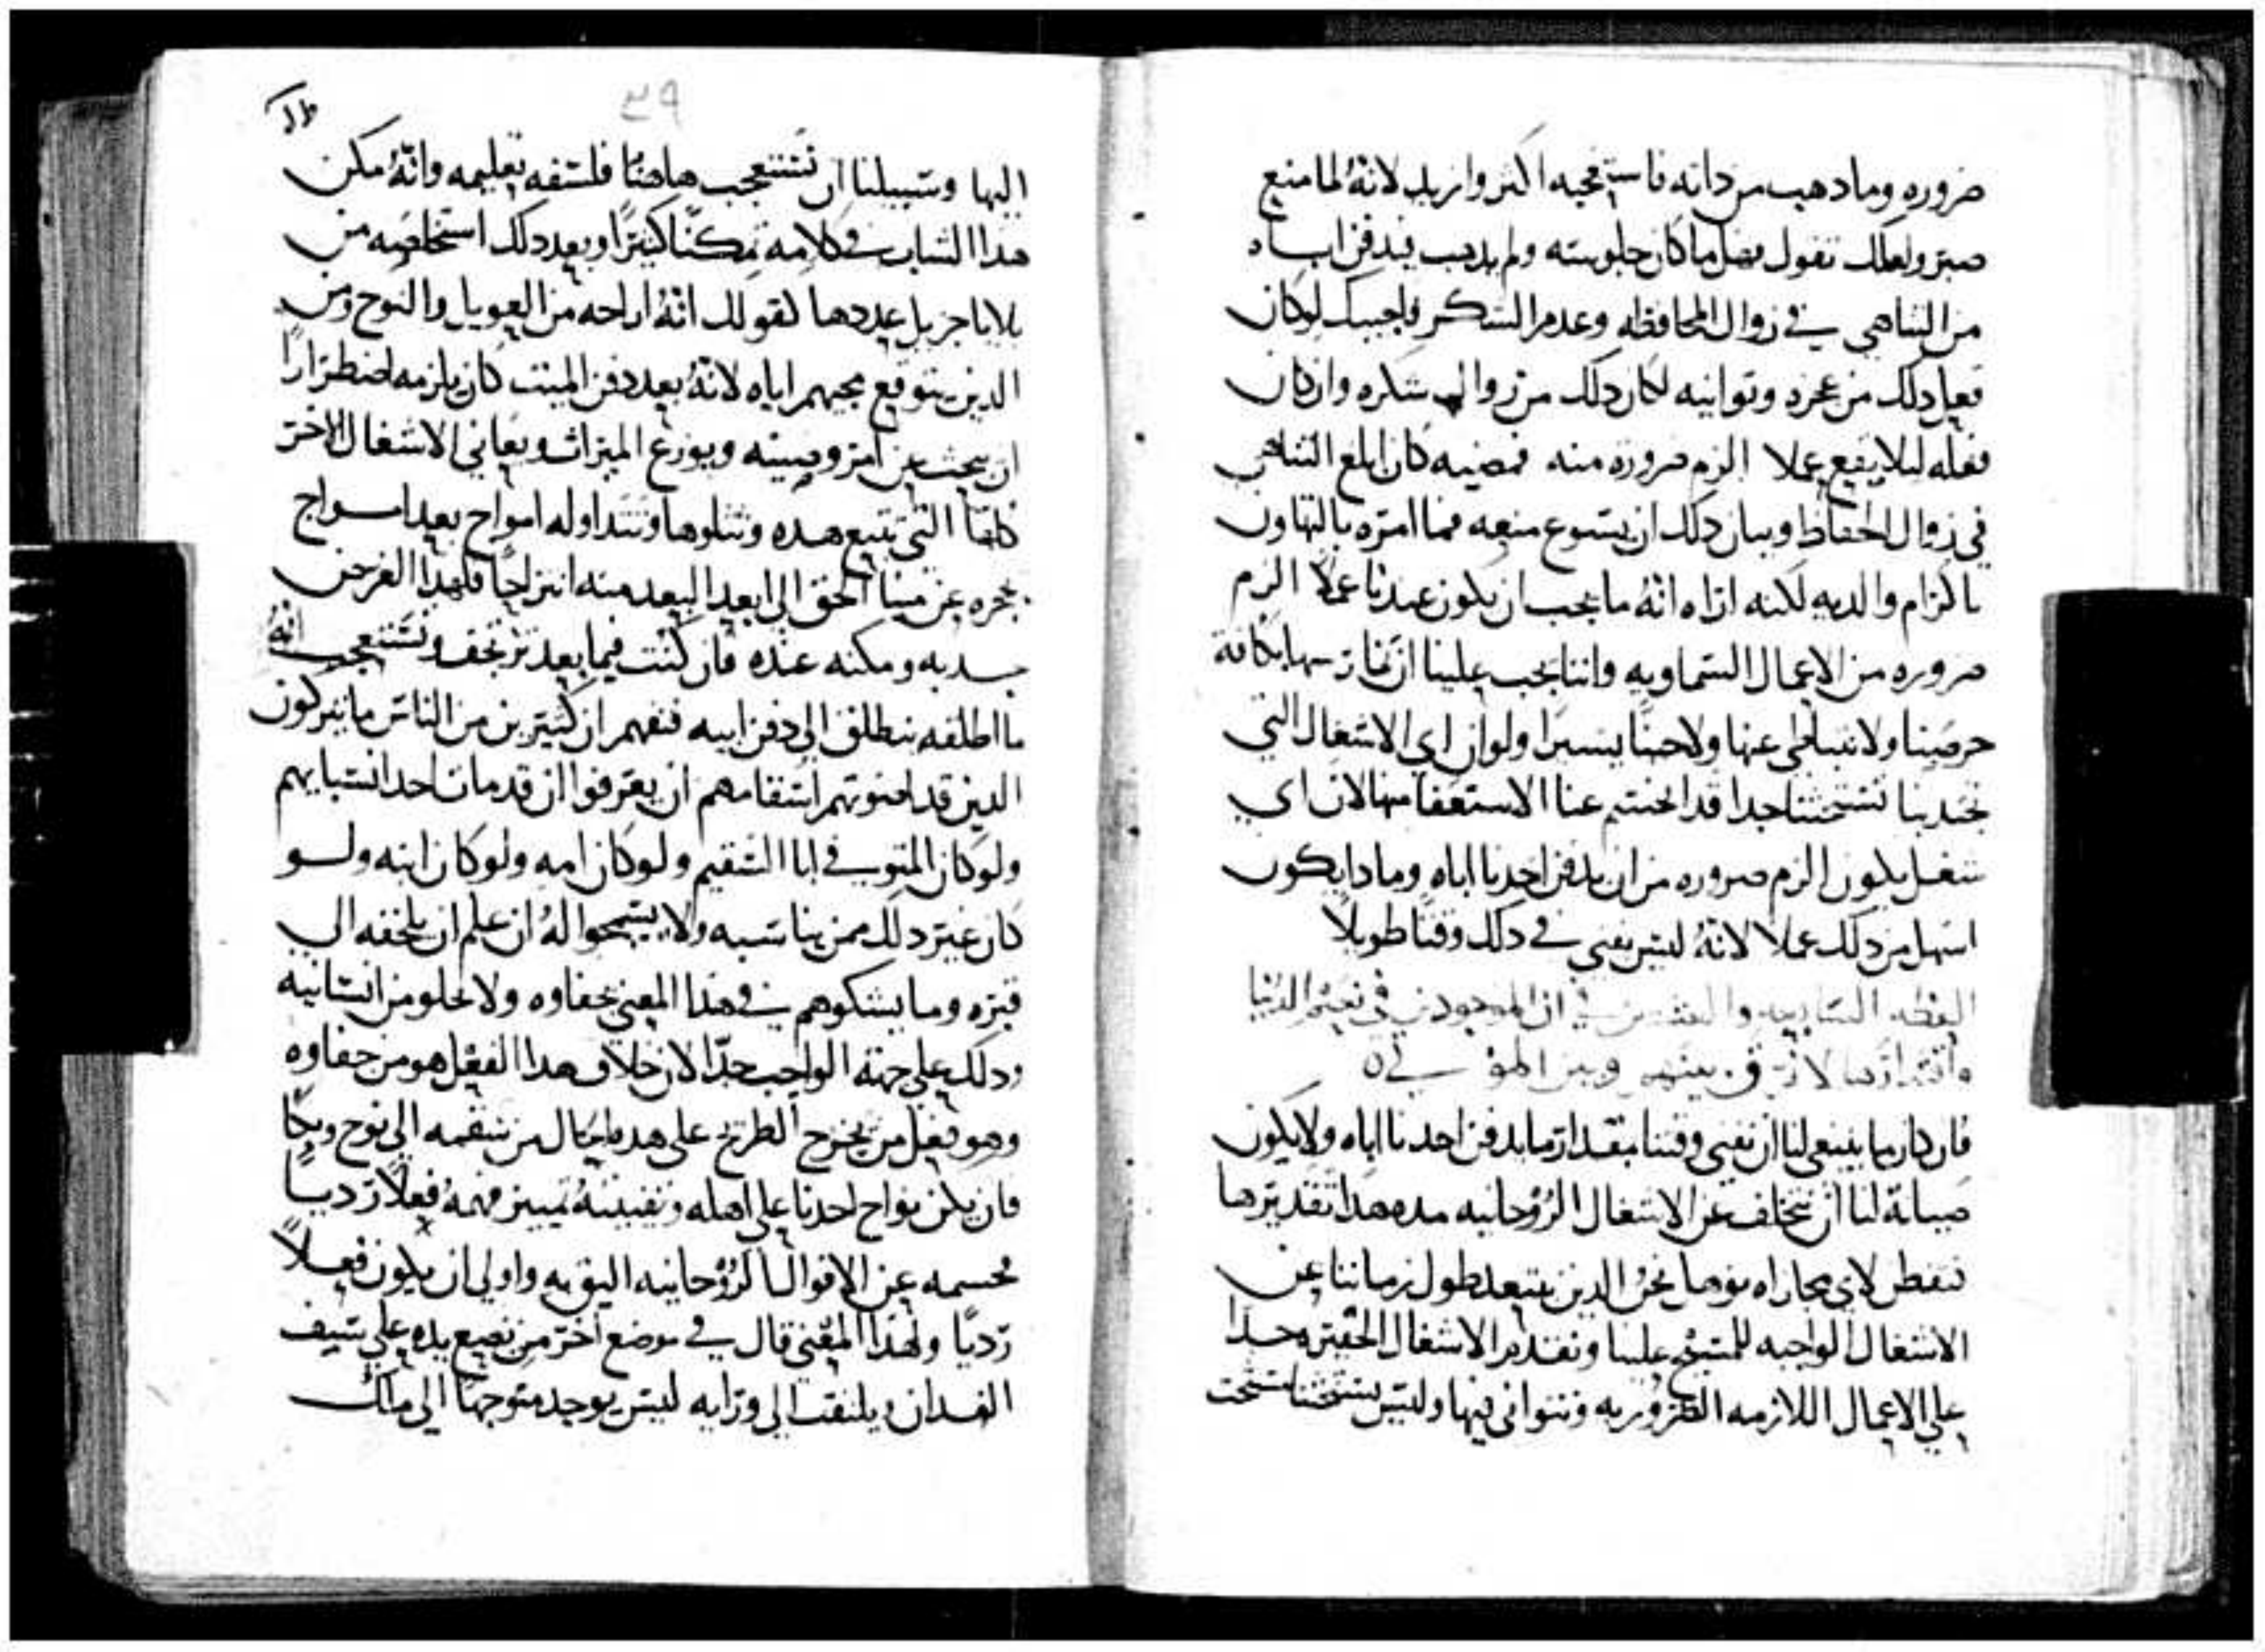 ضروره وما دهب من داته فاستعجبه اكثر وازيد لانه لما منع
صبر ولعلك تقول فهل ما كان جلوسه ولم يدهب فيدفن اباه
من التناهي في زوال المحافظه وعدم الشكر فاجيبك لو كان
فعل دلك من عجزه وتوانيه لكان دلك من زوال شكره وان كان
فعله ليلا يقع عملا الزم ضروره منه فمضيه كان ابلغ التناهي
في زوال الحفاظ وبيان دلك ان يسوع منعه فما امره بالتهاون
باكرام والديه لكنه اراه انه ما يجب ان يكون عندنا عملا الزم
ضروره من الاعمال السماويه واننا يجب علينا ان نمارسها بكافة
حرصنا ولا نتباطى عنها ولا حينا يسيرا ولو ان اي الاشغال التي
تجدبنا تستحثنا جدا قد انحسم عنا الاستعفا منها لان اي
شغل يكون الزم ضروره من ان يدفن احدنا اباه وما دا يكون
اسهل من دلك عملا لانه ليس يفني في دلك وقتا طويلا
العظه السابعه والعشرين في ان الموجودين في نعيم الدنيا
لا فرق بينهم وبين الموتى
فان كان ما ينبغي لنا ان نفني وقتنا بمقدار ما يدفن احدنا اباه ولا يكون
صيانة لنا ان نتخلف عن الاشغال الروحانيه مده هدا تقديرها
فتفطن لاي مجاراه نوهل نحن الدين نبتعد طول زماننا عن
الاشغال الواجبه للمسيح علينا ونقدم الاشغال الحقيره جدا
علي الاعمال اللازمه الضروريه ونتوانى فيها وليس يستحثنا مستحث
٣٩
اليها وسبيلنا ان نستعجب هاهنا فلسفه تعليمه وانه مكن
هدا الشاب في كلامه تمكنا كثيرا وبعد دلك استخلصه من
بلايا جزيل عددها كقولك انه اراحه من العويل والنوح ومن
الدين يتوقع مجيهم اياه لانه بعد دفن الميت كان يلزمه اضطرارا
ان يبحث عن امر وصيته ويوزع الميراث ويعاني الاشغال الاخر
كلها التي تتبع هده وتتلوها وتتداوله امواج بعد امواج
تجره عن مينا الحق الى ابعد البعد منه انتزاحا فلهدا الغرض
جدبه ومكنه عنده فان كنت فيما بعد ترتجف وتستعجب انه
ما اطلقه ينطلق الى دفن ابيه فتفهم ان كثيرين من الناس ما يتركون
الدين قد احنوتهم اسقامهم ان يعرفوا ان قد مات احد انسبايهم
ولو كان المتوفي ابا السقيم ولو كان امه ولو كان ابنه ولو
كان غير دلك ممن يناسبه ولا يسمحوا له ان علم ان يلحقه الى
قبره وما يشكوهم في هدا المعنى بجفاوه ولا بخلو من انسانيه
ودلك علي جهة الواجب جدا لان خلاف هدا الفعل هو من جفاوه
وهو فعل من يخرج الطريح علي هده الحال من سقمه الى نوح وبكا
فان يكن نواح احدنا علي اهله وتفنيته تمييز فهمه فعلا رديا
فحسمه عن الاقوال الروحانيه اليق به واولى ان يكون فعلا
رديا ولهدا المعنى قال في موضع اخر من يضع يده علي سيف
الفدان ويلتفت الى ورايه ليس يوجد متوجها الى ملك